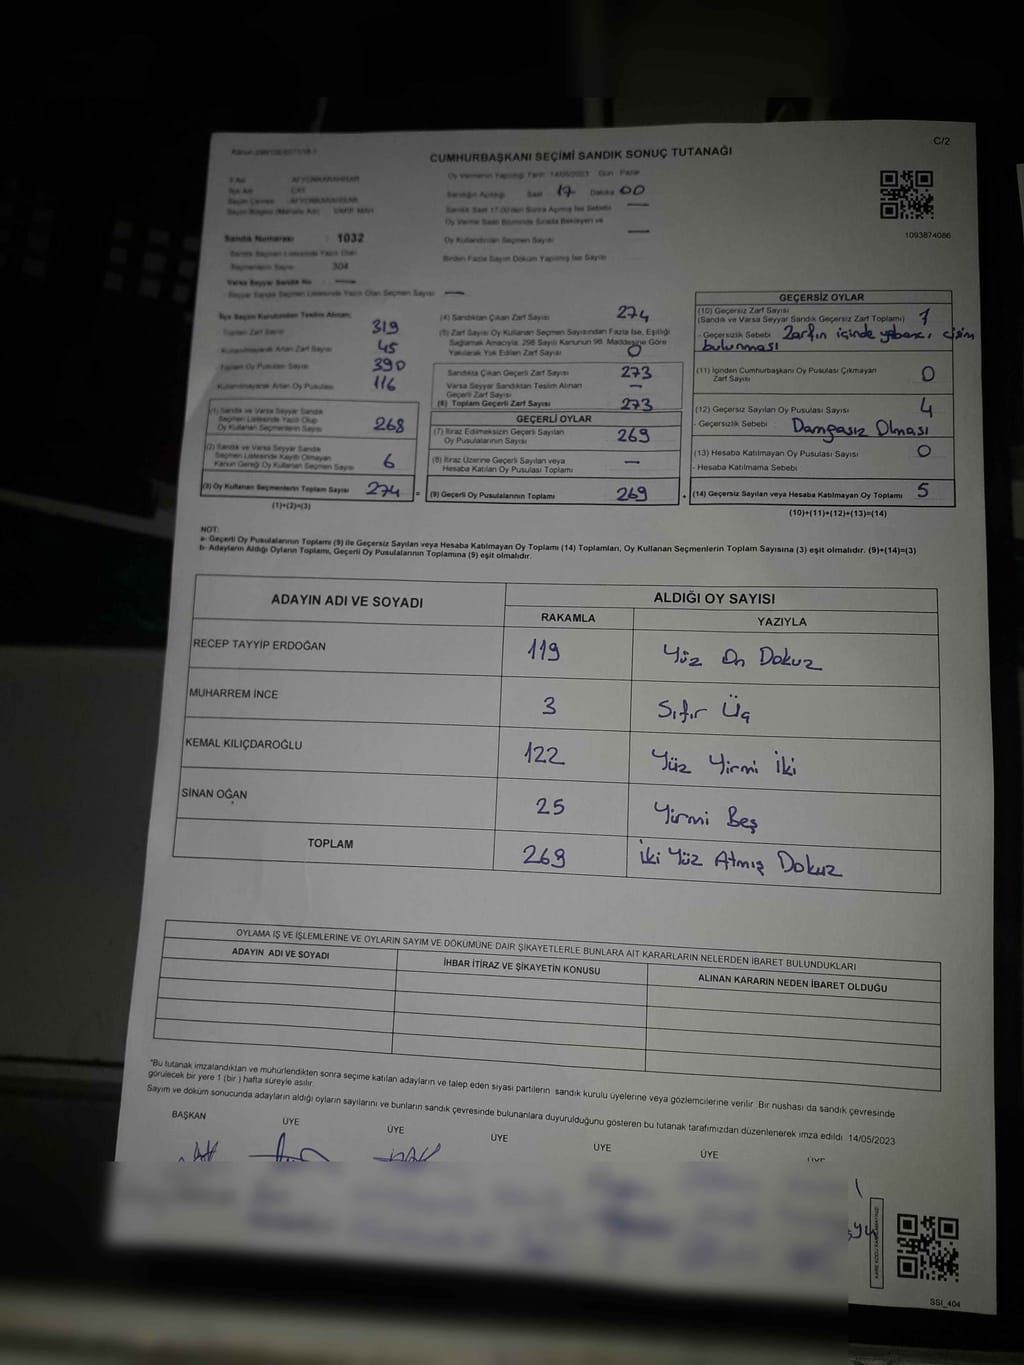 C/2
CUMHURBAŞKANI SEÇİMİ SANDIK SONUÇ TUTANAĞI
1093874086
Oy Vermenin Yapıldığı Tarih: 14/05/2023 Gün: Pazar
Sandığın Açıldığı Saat 17 Dakika 00
Sandık Saat 17:00'den Sonra Açılmış İse Sebebi —
Oy Verme Saati Bitiminde Sırada Bekleyen ve
Oy Kullandırılan Seçmen Sayısı —
Birden Fazla Sayım Döküm Yapılmış İse Sayısı
İli AFYONKARAHİSAR
İlçe Adı ÇAY
Seçim Çevresi AFYONKARAHİSAR
Sandık Numarası : 1032
Sandık Seçmen Listesinde Yazılı Olan
Seçmenlerin Sayısı 304
Varsa Seyyar Sandık No : —
- Seyyar Sandık Seçmen Listesinde Yazılı Olan Seçmen Sayısı —
İlçe Seçim Kurulundan Teslim Alınan;
- Toplam Zarf Sayısı 319
- Kullanılmayarak Artan Zarf Sayısı 45
- Toplam Oy Pusulası Sayısı 390
- Kullanılmayarak Artan Oy Pusulası 116
(1) Sandık ve Varsa Seyyar Sandık
Seçmen Listesinde Yazılı Olup
Oy Kullanan Seçmenlerin Sayısı 268
(2) Sandık ve Varsa Seyyar Sandık
Seçmen Listesinde Kayıtlı Olmayan
Kanun Gereği Oy Kullanan Seçmen Sayısı 6
(3) Oy Kullanan Seçmenlerin Toplam Sayısı 274 =
(1)+(2)=(3)
(4) Sandıktan Çıkan Zarf Sayısı 274
(5) Zarf Sayısı Oy Kullanan Seçmen Sayısından Fazla İse, Eşitliği
Sağlamak Amacıyla, 298 Sayılı Kanunun 98. Maddesine Göre
Yakılarak Yok Edilen Zarf Sayısı 0
Sandıkta Çıkan Geçerli Zarf Sayısı 273
Varsa Seyyar Sandıktan Teslim Alınan
Geçerli Zarf Sayısı —
(6) Toplam Geçerli Zarf Sayısı 273
GEÇERLİ OYLAR
(7) İtiraz Edilmeksizin Geçerli Sayılan
Oy Pusulalarının Sayısı 269
(8) İtiraz Üzerine Geçerli Sayılan veya
Hesaba Katılan Oy Pusulası Toplamı —
(9) Geçerli Oy Pusulalarının Toplamı 269 +
GEÇERSİZ OYLAR
(10) Geçersiz Zarf Sayısı
(Sandık ve Varsa Seyyar Sandık Geçersiz Zarf Toplamı) 1
- Geçersizlik Sebebi Zarfın içinde yabancı cisim
bulunması
(11) İçinden Cumhurbaşkanı Oy Pusulası Çıkmayan
Zarf Sayısı 0
(12) Geçersiz Sayılan Oy Pusulası Sayısı 4
- Geçersizlik Sebebi Damgasız Olması
(13) Hesaba Katılmayan Oy Pusulası Sayısı 0
- Hesaba Katılmama Sebebi
(14) Geçersiz Sayılan veya Hesaba Katılmayan Oy Toplamı 5
(10)+(11)+(12)+(13)=(14)
NOT:
a- Geçerli Oy Pusulalarının Toplamı (9) ile Geçersiz Sayılan veya Hesaba Katılmayan Oy Toplamı (14) Toplamları, Oy Kullanan Seçmenlerin Toplam Sayısına (3) eşit olmalıdır. (9)+(14)=(3)
b- Adayların Aldığı Oyların Toplamı, Geçerli Oy Pusulalarının Toplamına (9) eşit olmalıdır.
ADAYIN ADI VE SOYADI ALDIĞI OY SAYISI
RAKAMLA YAZIYLA
RECEP TAYYİP ERDOĞAN 119 Yüz On Dokuz
MUHARREM İNCE 3 Sıfır Üç
KEMAL KILIÇDAROĞLU 122 Yüz Yirmi İki
SİNAN OĞAN 25 Yirmi Beş
TOPLAM 269 İki Yüz Atmış Dokuz
OYLAMA İŞ VE İŞLEMLERİNE VE OYLARIN SAYIM VE DÖKÜMÜNE DAİR ŞİKAYETLERLE BUNLARA AİT KARARLARIN NELERDEN İBARET BULUNDUKLARI
ADAYIN ADI VE SOYADI İHBAR İTİRAZ VE ŞİKAYETİN KONUSU ALINAN KARARIN NEDEN İBARET OLDUĞU
*Bu tutanak imzalandıktan ve mühürlendikten sonra seçime katılan adayların ve talep eden siyasi partilerin sandık kurulu üyelerine veya gözlemcilerine verilir. Bir nüshası da sandık çevresinde
görülecek bir yere 1 (bir) hafta süreyle asılır.
Sayım ve döküm sonucunda adayların aldığı oyların sayılarını ve bunların sandık çevresinde bulunanlara duyurulduğunu gösteren bu tutanak tarafımızdan düzenlenerek imza edildi. 14/05/2023
BAŞKAN ÜYE ÜYE ÜYE ÜYE ÜYE ÜYE
SSI_404